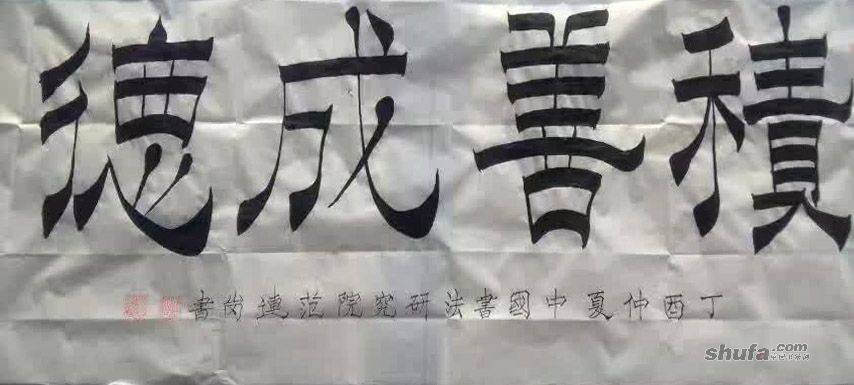 積善成德
丁酉仲夏中國書法研究院范連崗書
shufa.com